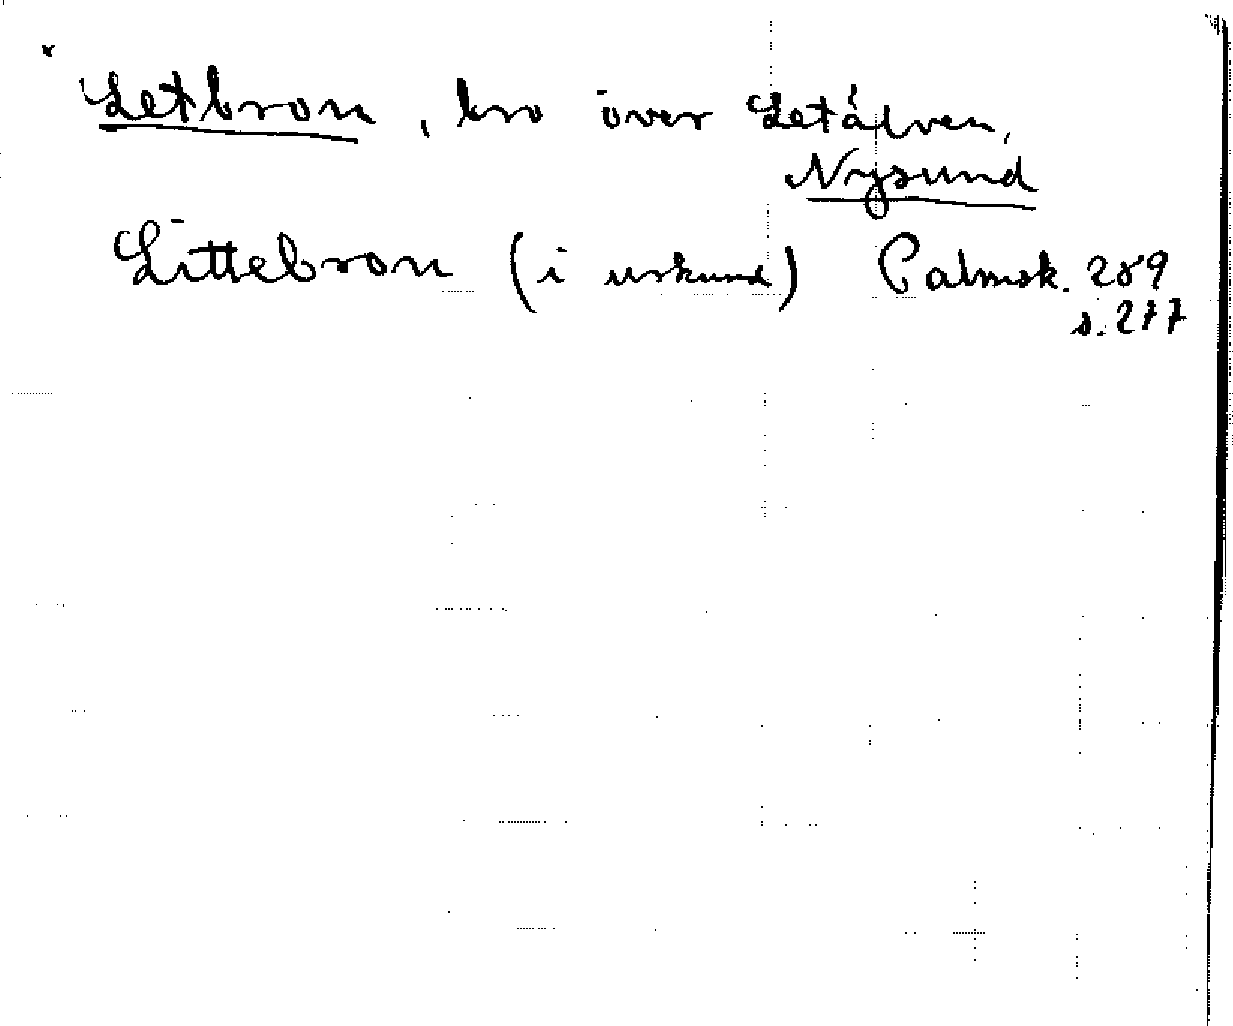 x
Letbron, bro över Letälven,
Nysund
Littebron (i urkund) Palmsk. 289
s. 277